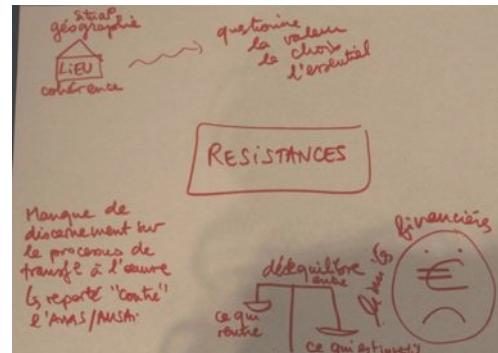 géographie
LIEU
cohérence
questionne
la valeur
le choix
l'essentiel
RESISTANCES
Manque de
discernement sur
le processus de
transfert à l'œuvre
reporté "contre"
financières
€
déséquilibre
entre
ce qui
rentre
ce qui